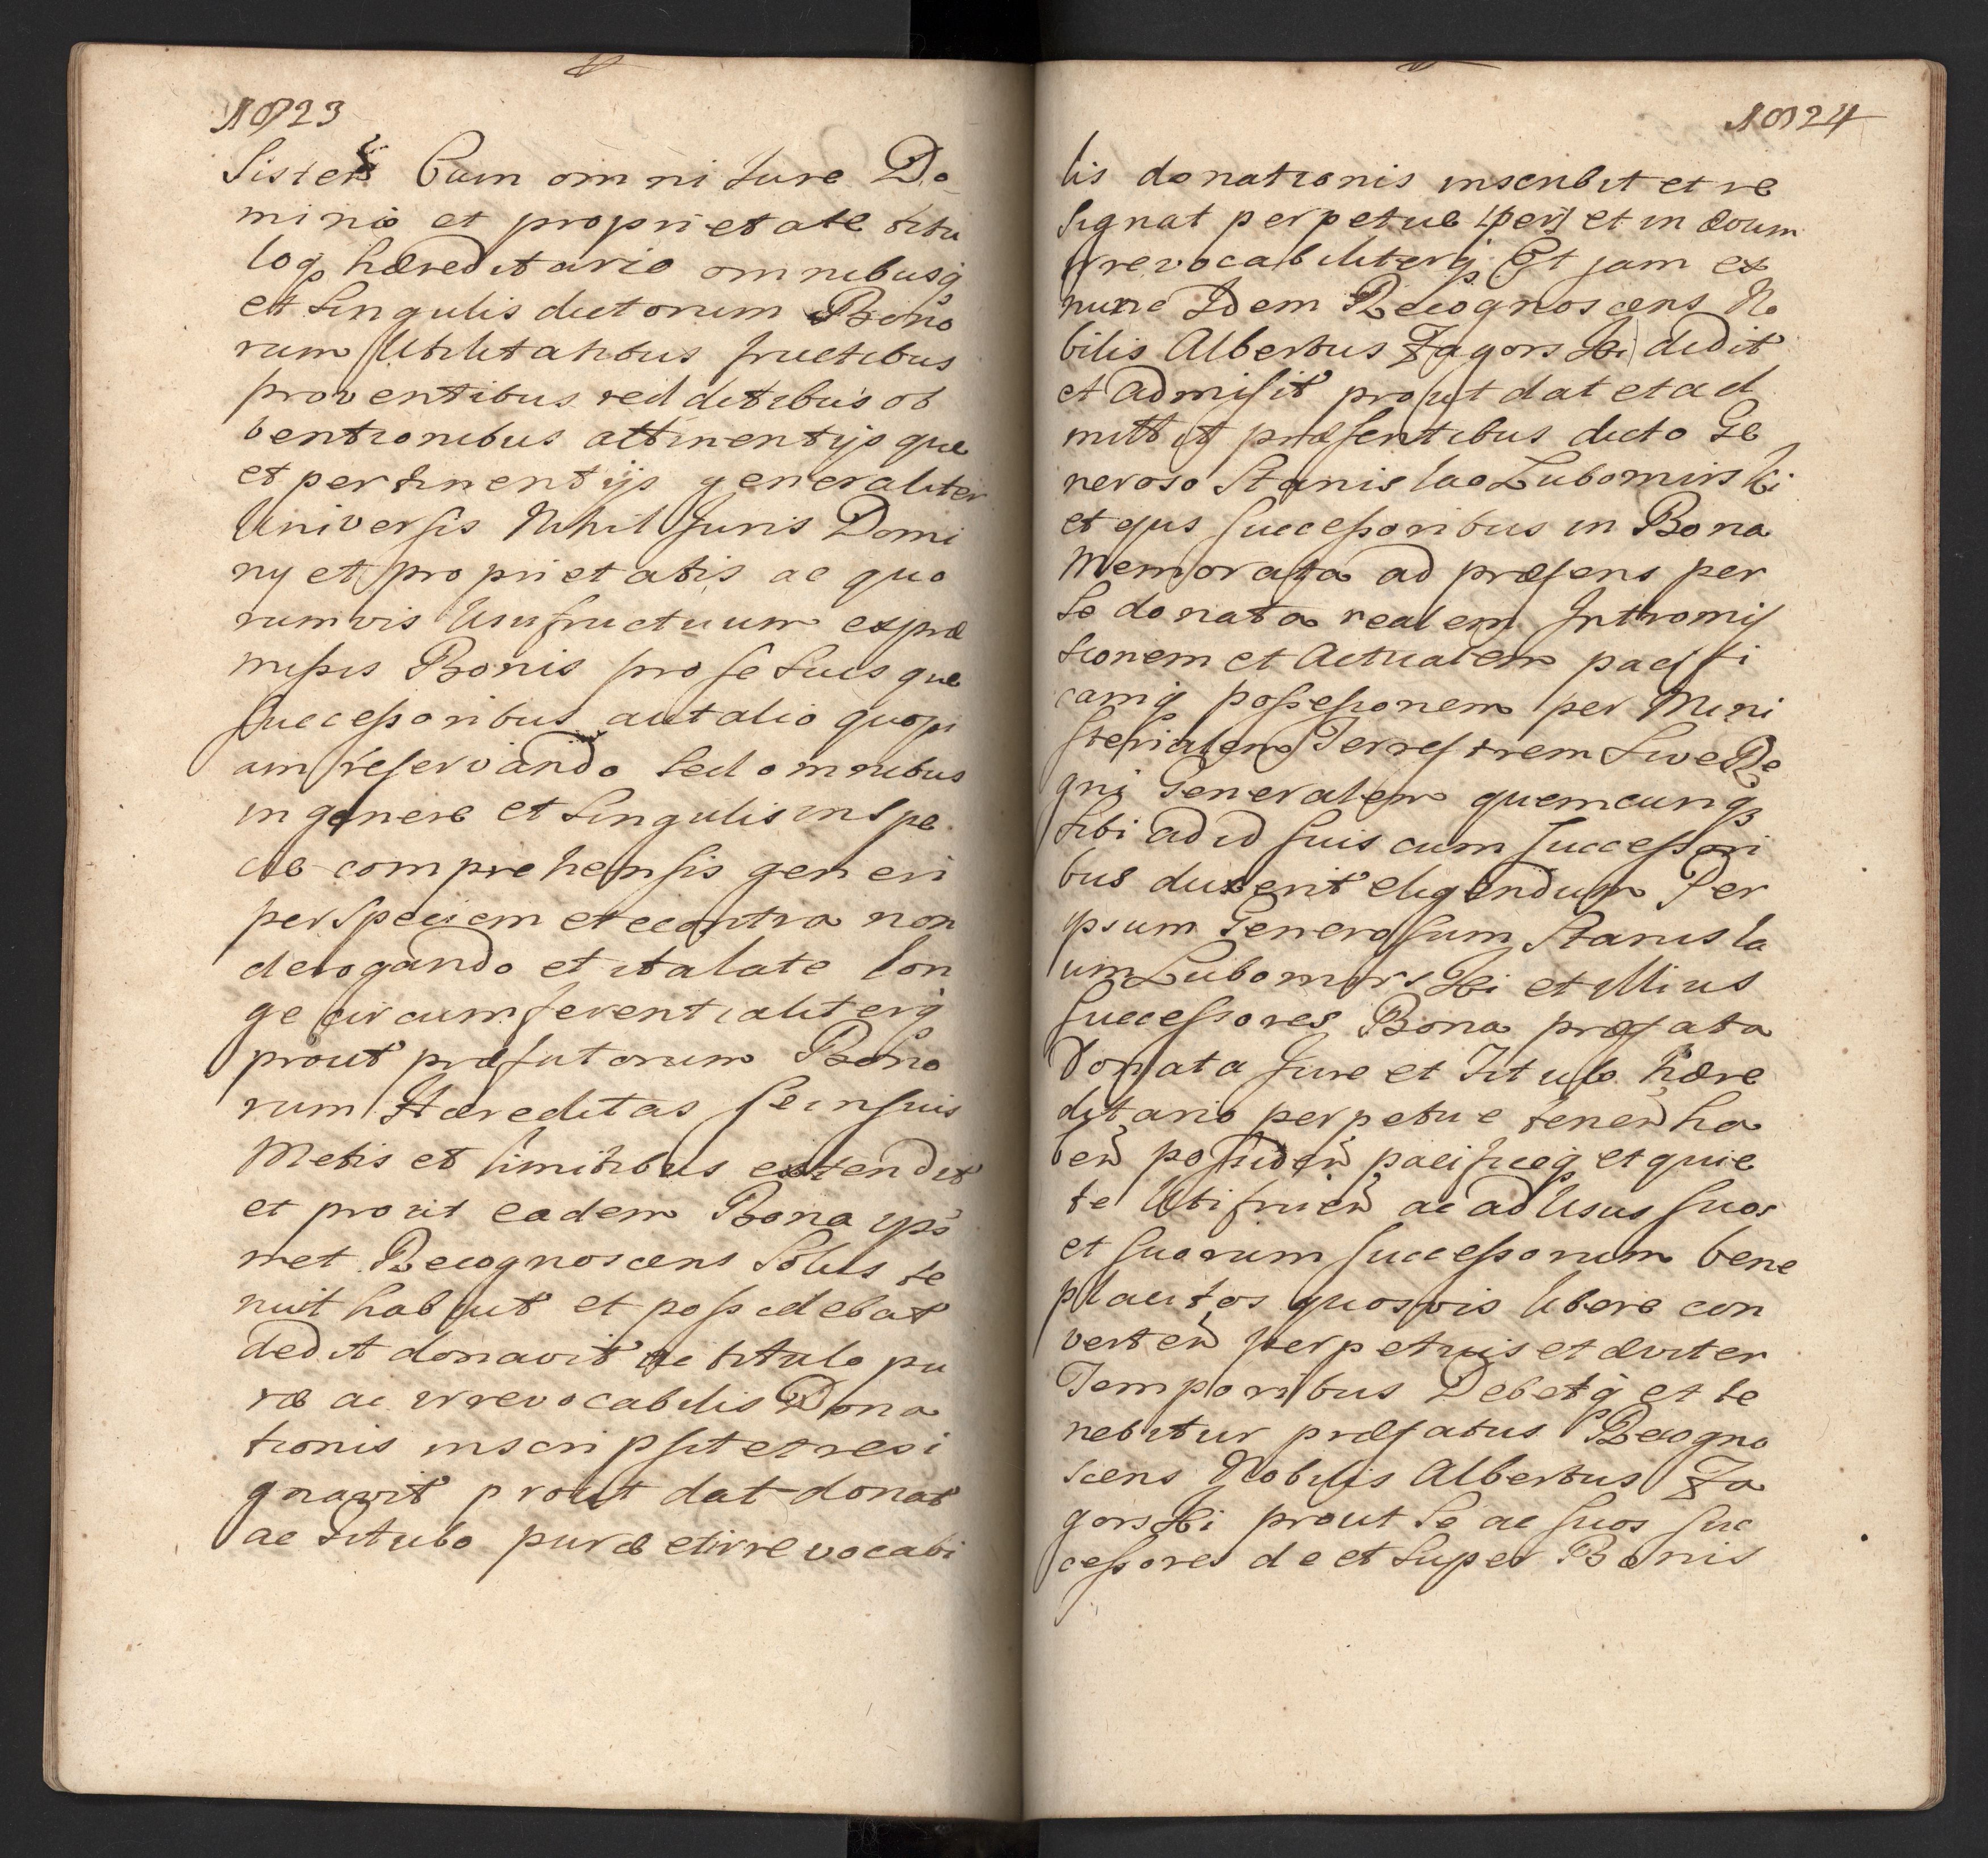 N0 23
Sisteñ Cum omni Jure Do
minio et proprietate titu
loq₃ hæreditario omnibusq₃
et Singulis dictorum Bono
rum Utilitatibus fructibus
proventibus redditibus ob
ventionibus attinentijs que
et pertinentijs generaliter
Universis Nihil Juris Domi
nÿ et proprietatis ac quo
rumvis Usufructuum ex præ
missis Bonis pro se Suis que
Successoribus aut alio quopi
am reservando Sed omnibus
in genere et Singulis in Spe
cie comprehensis generi
per Speciem et econtra non
derogando et ita late lon
ge circumferentialiterq₃
prout præfatorum Bono
rum Hæreditas Se in Suis
Metis et limitibus extendit
et prout eadem Bona ips̃
met Recognoscens Solus te
nuit habuit et possidebat
dedit donavit ac titulo pu
ræ ac irrevocabilis Dona
tionis inscripsit et resi
gnavit prout dat donat
ac titulo puræ et irrevocabi
N0 24
lis donationis inscribit et re
Signat perpetue [per] et in ævum
irrevocabiliterq₃ Et jam ex
nunc Idem Recognoscens No
bilis Albertus Zagorski dedit
et admisit prout dat et ad
mittit præsentibus dicto Ge
neroso Stanislao Lubomirski
et ejus Successoribus in Bona
Memorata ad præsens per
Se donata realem Intromis
sionem et Actualem pacifi
camq₃ possessionem per Mini
sterialem Terrestrem Sive Re
gni Generalem quemcunq₃
Sibi ad id Suis cum Successori
bus duxerit eligendum Per
ipsum Generosum Stanisla
um Lubomirski et illius
Successores Bona præfata
Donata Jure et Titulo hære
ditario perpetue teneñ ha
beñ possideñ pacificeq₃ et quie
te Utifrueñ ac ad Usus Suos
et Suorum Successorum bene
placitos quosvis libere con
verteñ perpetuis et æviter
Temporibus Debetq₃ et te
nebitur præfatus Recogno
scens Nobilis Albertus Za
gorski prout Se ac Suos Suc
cessores de et Super Bonis